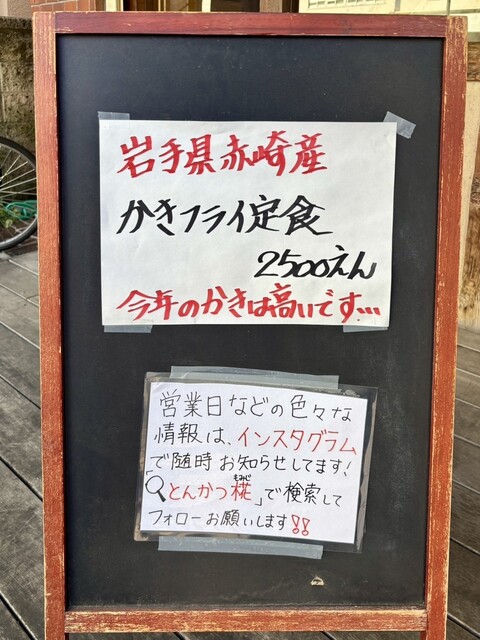 岩手県赤崎産
かきフライ定食
2500えん
今年のかきは高いです…
営業日などの色々な
情報は、インスタグラム
で随時お知らせしてます!
もみじ
「🔍とんかつ椛」で検索して
フォローお願いします!!